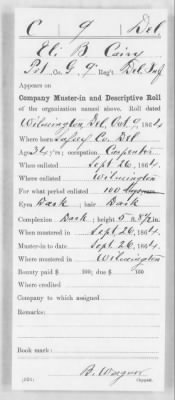 C 9 Del
Eli B Cairy
Pvt, Co. G, 9 Reg't Del Inf
Appears on
Company Muster-in and Descriptive Roll
of the organization named above. Roll dated
Wilmington Del, Oct 9, 1864
Where born Sussex Co. Del
Age 34 y'rs; occupation, Carpenter
When enlisted Sept 26, 1864
Where enlisted Wilmington
For what period enlisted 100 days
Eyes Dark; hair Dark
Complexion Dark; height 5 ft. 8½ in.
When mustered in Sept 26, 1864
Muster-in to date Sept 26, 1864
Where mustered in Wilmington
Bounty paid $ 100; due $ 100
Where credited
Company to which assigned
Remarks:
Book mark:
B. Wagner
Copyist.